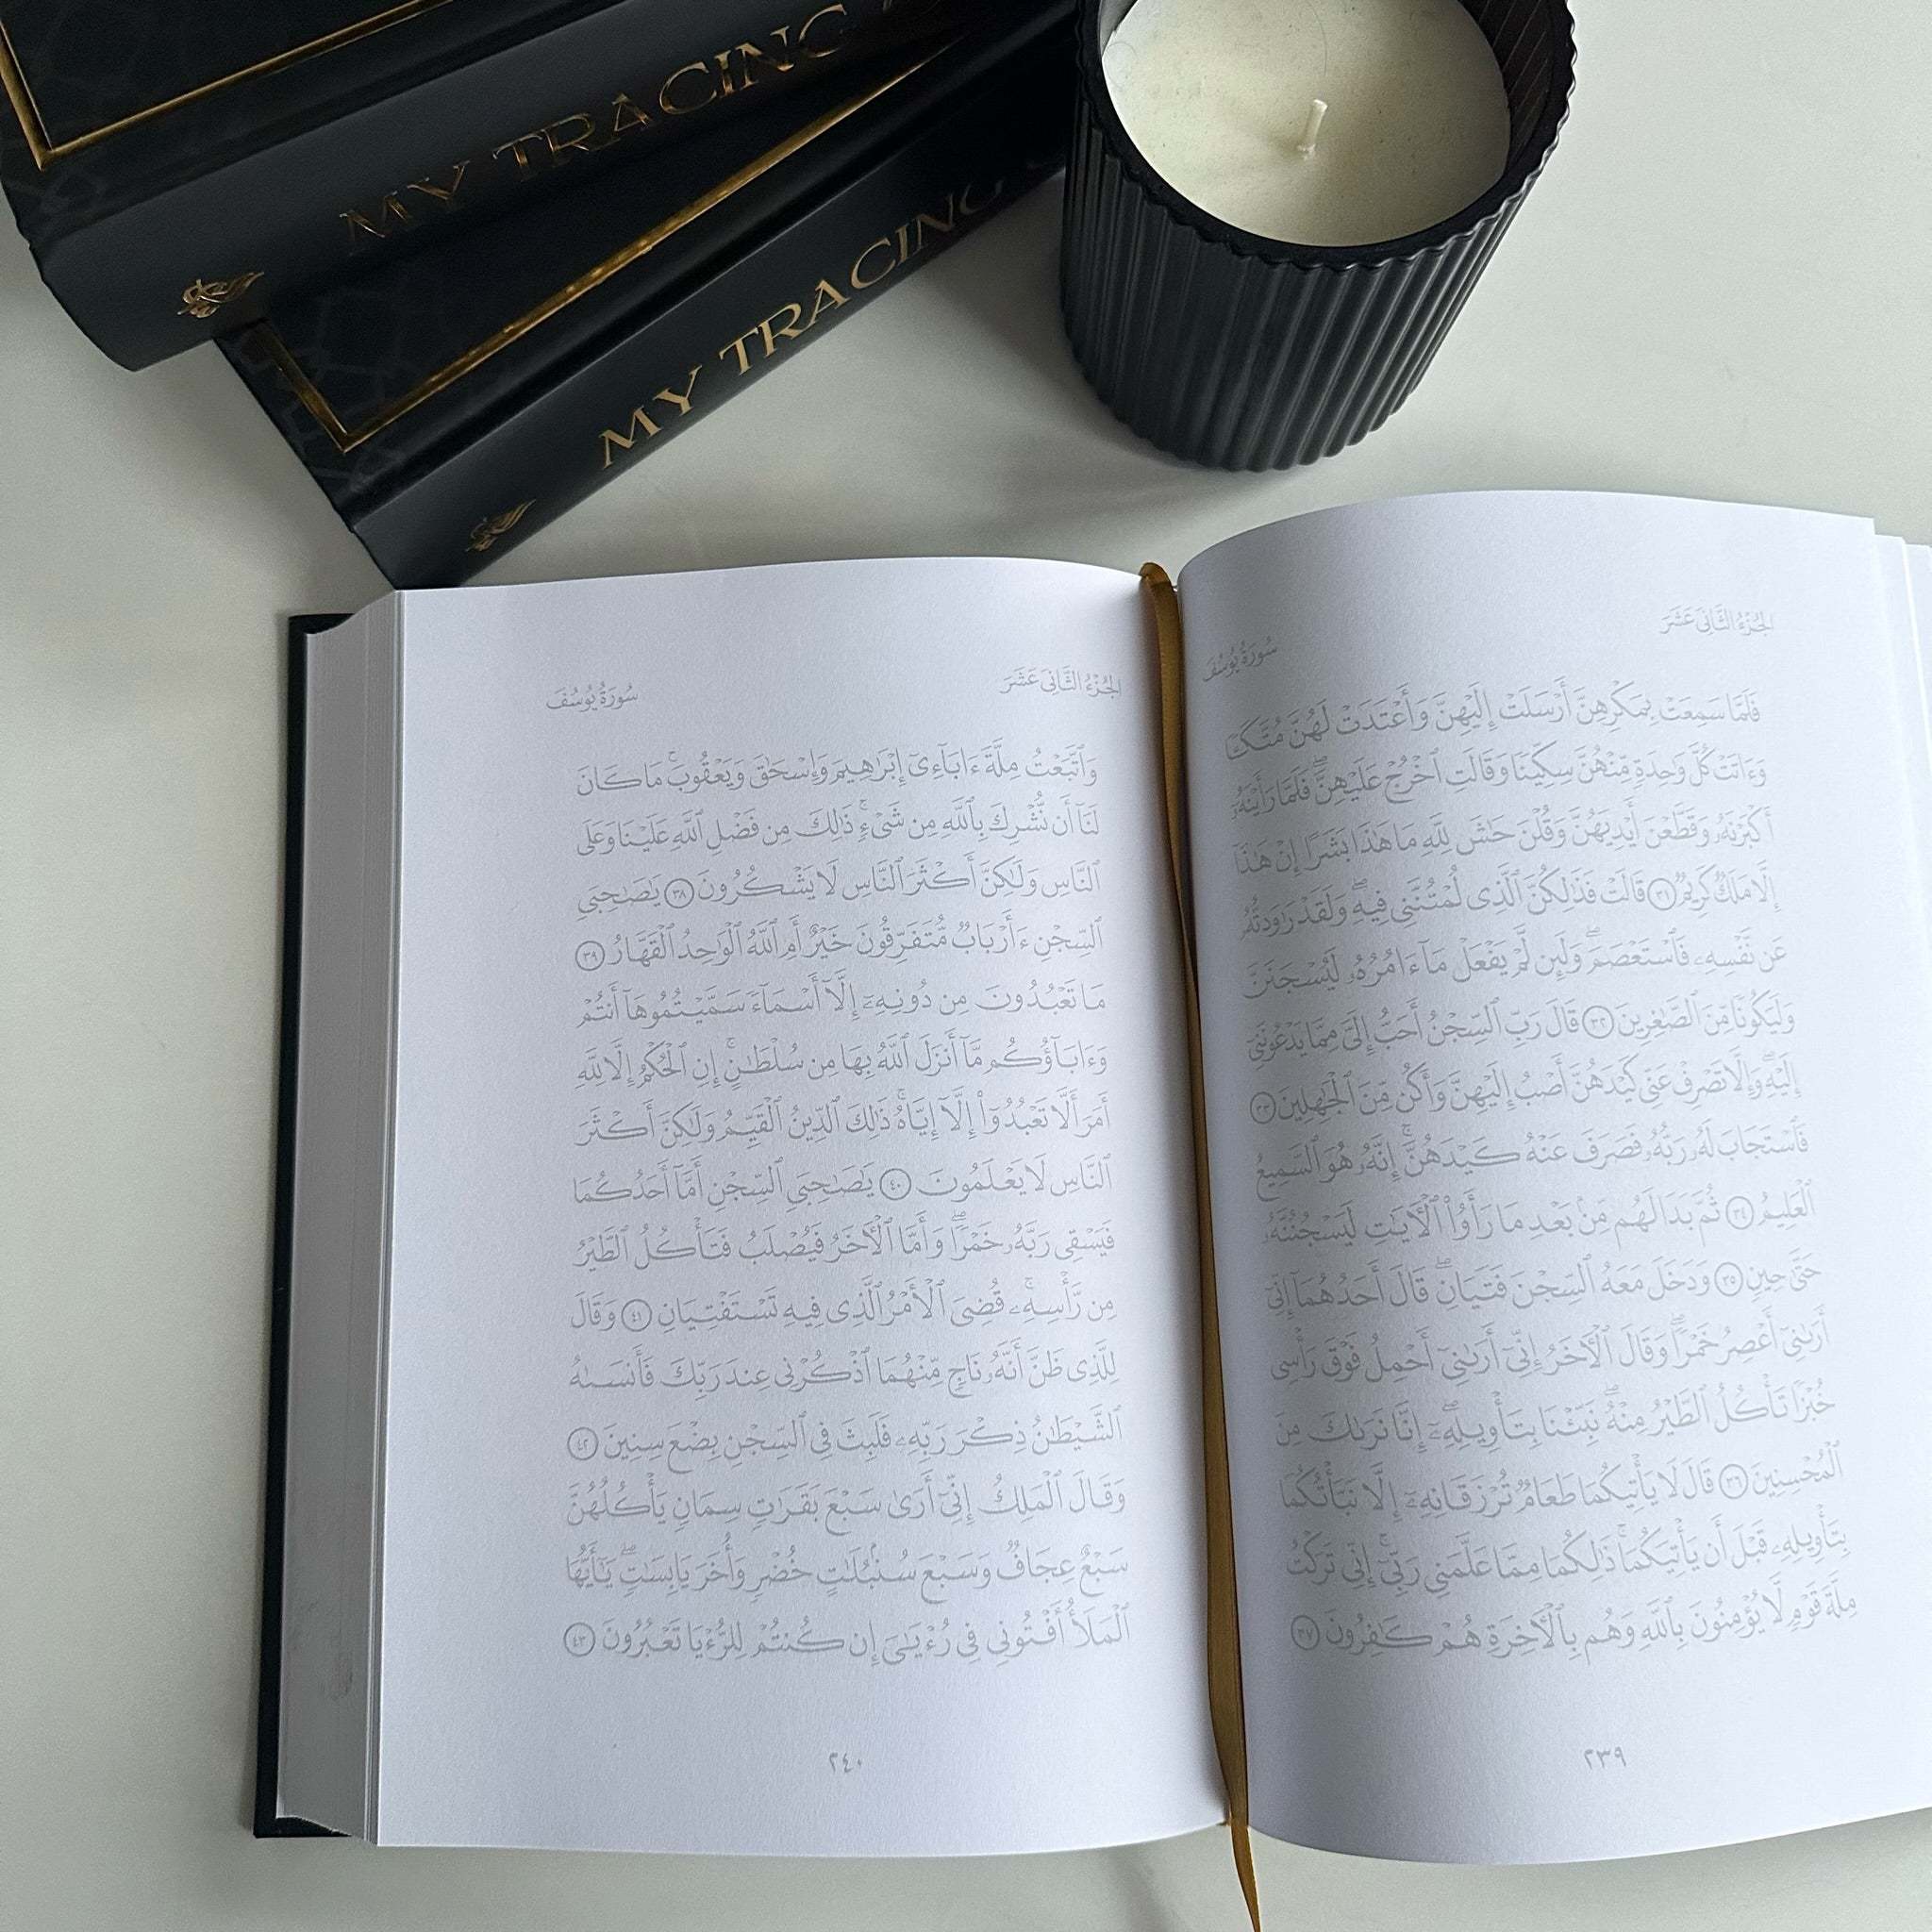 MY TRACING
MY TRACING
الجُزْءُ الثَّانِيَ عَشَرَ
سُورَةُ يُوسُفَ
فَلَمَّا سَمِعَتْ بِمَكْرِهِنَّ أَرْسَلَتْ إِلَيْهِنَّ وَأَعْتَدَتْ لَهُنَّ مُتَّكَـًٔا
وَءَاتَتْ كُلَّ وَٰحِدَةٍ مِّنْهُنَّ سِكِّينًا وَقَالَتِ ٱخْرُجْ عَلَيْهِنَّ ۖ فَلَمَّا رَأَيْنَهُۥٓ
أَكْبَرْنَهُۥ وَقَطَّعْنَ أَيْدِيَهُنَّ وَقُلْنَ حَٰشَ لِلَّهِ مَا هَٰذَا بَشَرًا إِنْ هَٰذَآ
إِلَّا مَلَكٌ كَرِيمٌ ٣١ قَالَتْ فَذَٰلِكُنَّ ٱلَّذِى لُمْتُنَّنِى فِيهِ ۖ وَلَقَدْ رَٰوَدتُّهُۥ
عَن نَّفْسِهِۦ فَٱسْتَعْصَمَ ۖ وَلَئِن لَّمْ يَفْعَلْ مَآ ءَامُرُهُۥ لَيُسْجَنَنَّ
وَلَيَكُونًا مِّنَ ٱلصَّٰغِرِينَ ٣٢ قَالَ رَبِّ ٱلسِّجْنُ أَحَبُّ إِلَىَّ مِمَّا يَدْعُونَنِىٓ
إِلَيْهِ ۖ وَإِلَّا تَصْرِفْ عَنِّى كَيْدَهُنَّ أَصْبُ إِلَيْهِنَّ وَأَكُن مِّنَ ٱلْجَٰهِلِينَ ٣٣
فَٱسْتَجَابَ لَهُۥ رَبُّهُۥ فَصَرَفَ عَنْهُ كَيْدَهُنَّ ۚ إِنَّهُۥ هُوَ ٱلسَّمِيعُ
ٱلْعَلِيمُ ٣٤ ثُمَّ بَدَا لَهُم مِّنۢ بَعْدِ مَا رَأَوُا۟ ٱلْءَايَٰتِ لَيَسْجُنُنَّهُۥ
حَتَّىٰ حِينٍ ٣٥ وَدَخَلَ مَعَهُ ٱلسِّجْنَ فَتَيَانِ ۖ قَالَ أَحَدُهُمَآ إِنِّىٓ
أَرَىٰنِىٓ أَعْصِرُ خَمْرًا ۖ وَقَالَ ٱلْءَاخَرُ إِنِّىٓ أَرَىٰنِىٓ أَحْمِلُ فَوْقَ رَأْسِى
خُبْزًا تَأْكُلُ ٱلطَّيْرُ مِنْهُ ۖ نَبِّئْنَا بِتَأْوِيلِهِۦٓ ۖ إِنَّا نَرَىٰكَ مِنَ
ٱلْمُحْسِنِينَ ٣٦ قَالَ لَا يَأْتِيكُمَا طَعَامٌ تُرْزَقَانِهِۦٓ إِلَّا نَبَّأْتُكُمَا
بِتَأْوِيلِهِۦ قَبْلَ أَن يَأْتِيَكُمَا ۚ ذَٰلِكُمَا مِمَّا عَلَّمَنِى رَبِّىٓ ۚ إِنِّى تَرَكْتُ
مِلَّةَ قَوْمٍ لَّا يُؤْمِنُونَ بِٱللَّهِ وَهُم بِٱلْءَاخِرَةِ هُمْ كَٰفِرُونَ ٣٧
٢٣٩
الجُزْءُ الثَّانِيَ عَشَرَ
سُورَةُ يُوسُفَ
وَٱتَّبَعْتُ مِلَّةَ ءَابَآءِىٓ إِبْرَٰهِيمَ وَإِسْحَٰقَ وَيَعْقُوبَ ۚ مَا كَانَ
لَنَآ أَن نُّشْرِكَ بِٱللَّهِ مِن شَىْءٍ ۚ ذَٰلِكَ مِن فَضْلِ ٱللَّهِ عَلَيْنَا وَعَلَى
ٱلنَّاسِ وَلَٰكِنَّ أَكْثَرَ ٱلنَّاسِ لَا يَشْكُرُونَ ٣٨ يَٰصَٰحِبَىِ
ٱلسِّجْنِ ءَأَرْبَابٌ مُّتَفَرِّقُونَ خَيْرٌ أَمِ ٱللَّهُ ٱلْوَٰحِدُ ٱلْقَهَّارُ ٣٩
مَا تَعْبُدُونَ مِن دُونِهِۦٓ إِلَّآ أَسْمَآءً سَمَّيْتُمُوهَآ أَنتُمْ
وَءَابَآؤُكُم مَّآ أَنزَلَ ٱللَّهُ بِهَا مِن سُلْطَٰنٍ ۚ إِنِ ٱلْحُكْمُ إِلَّا لِلَّهِ
أَمَرَ أَلَّا تَعْبُدُوٓا۟ إِلَّآ إِيَّاهُ ۚ ذَٰلِكَ ٱلدِّينُ ٱلْقَيِّمُ وَلَٰكِنَّ أَكْثَرَ
ٱلنَّاسِ لَا يَعْلَمُونَ ٤٠ يَٰصَٰحِبَىِ ٱلسِّجْنِ أَمَّآ أَحَدُكُمَا
فَيَسْقِى رَبَّهُۥ خَمْرًا ۖ وَأَمَّا ٱلْءَاخَرُ فَيُصْلَبُ فَتَأْكُلُ ٱلطَّيْرُ
مِن رَّأْسِهِۦ ۚ قُضِىَ ٱلْأَمْرُ ٱلَّذِى فِيهِ تَسْتَفْتِيَانِ ٤١ وَقَالَ
لِلَّذِى ظَنَّ أَنَّهُۥ نَاجٍ مِّنْهُمَا ٱذْكُرْنِى عِندَ رَبِّكَ فَأَنسَىٰهُ
ٱلشَّيْطَٰنُ ذِكْرَ رَبِّهِۦ فَلَبِثَ فِى ٱلسِّجْنِ بِضْعَ سِنِينَ ٤٢
وَقَالَ ٱلْمَلِكُ إِنِّىٓ أَرَىٰ سَبْعَ بَقَرَٰتٍ سِمَانٍ يَأْكُلُهُنَّ
سَبْعٌ عِجَافٌ وَسَبْعَ سُنۢبُلَٰتٍ خُضْرٍ وَأُخَرَ يَابِسَٰتٍ ۖ يَٰٓأَيُّهَا
ٱلْمَلَأُ أَفْتُونِى فِى رُءْيَٰىَ إِن كُنتُمْ لِلرُّءْيَا تَعْبُرُونَ ٤٣
٢٤٠